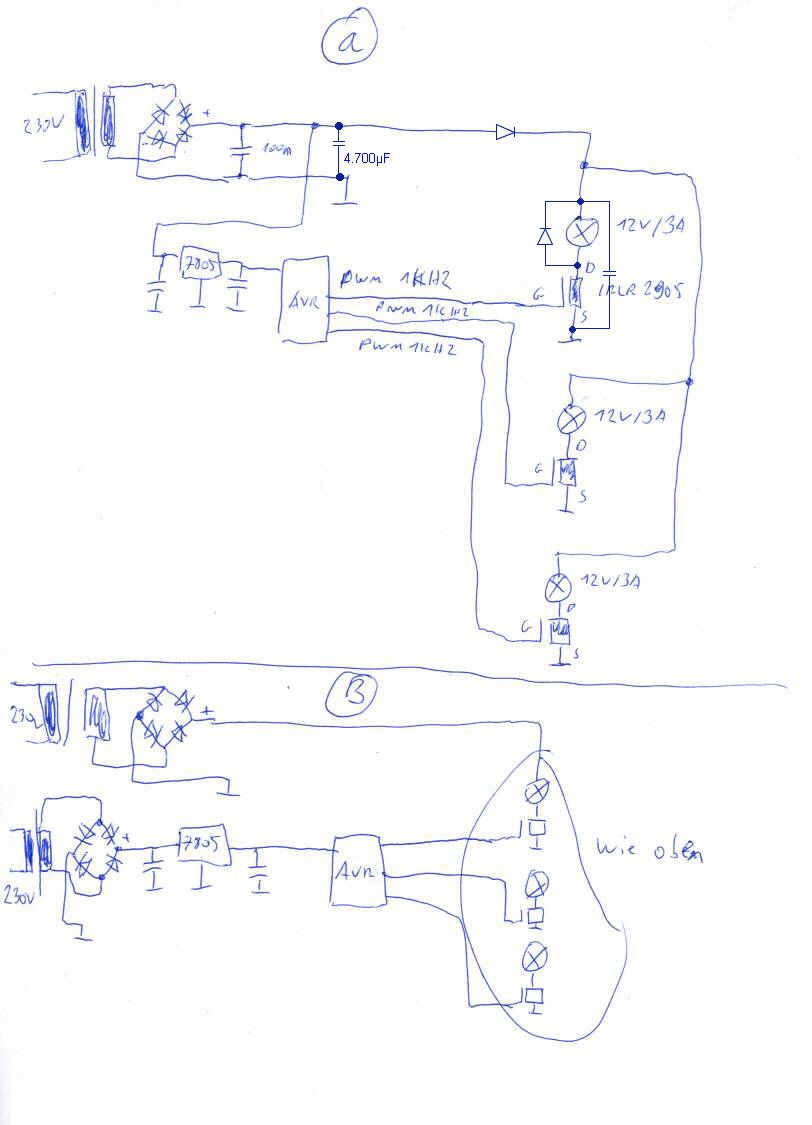 a
230V
+
100n
4.700µF
7805
AVR
PWM 1KHZ
PWM 1KHZ
PWM 1KHZ
12V/3A
D
G
IRLR 2905
S
12V/3A
D
G
S
12V/3A
D
G
S
B
230V
+
230V
+
7805
AVR
wie oben